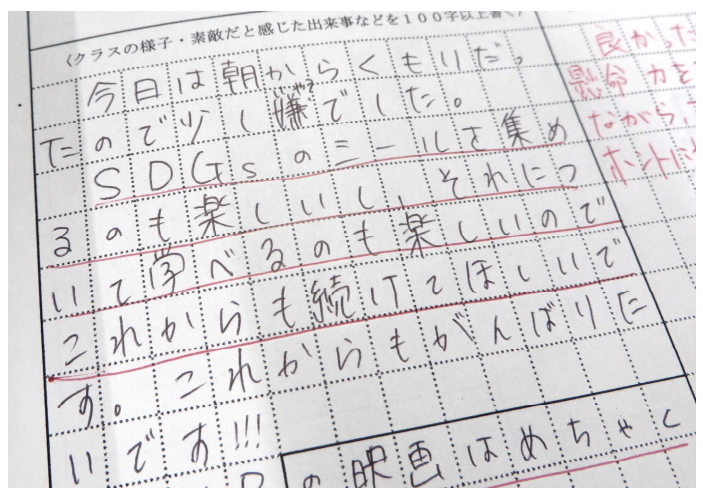 (クラスの様子・素敵だと感じた出来事などを100字以上書く)
今日は朝からくもりだ。
たので少し嫌でした。
いや?
SDGsのミールを集め
るのも楽しいし、それにつ
いて学べるのも楽しいので
これからも続けてほしいで
す。これからもがんばりた
いです!!!
の映画はめちゃく
良かった
懸命力を
ながら、
ホントに